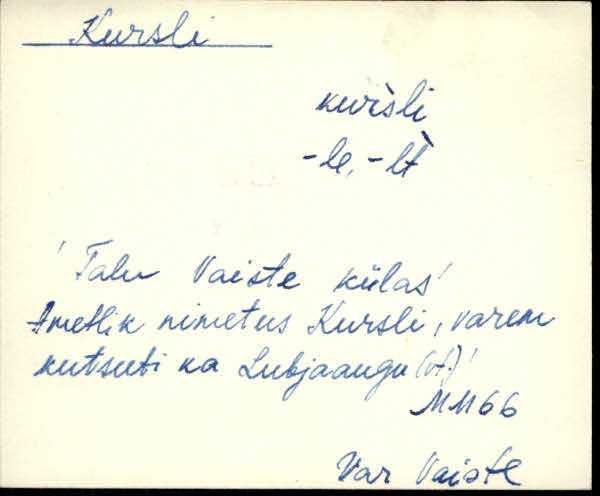 Kursli
kuŕsli
-le, -lt
'Talu Vaiste külas'
Ametlik nimetus Kursli, varem
kutsuti ka Lubjaaugu (vt.)'
MM66
Var Vaiste